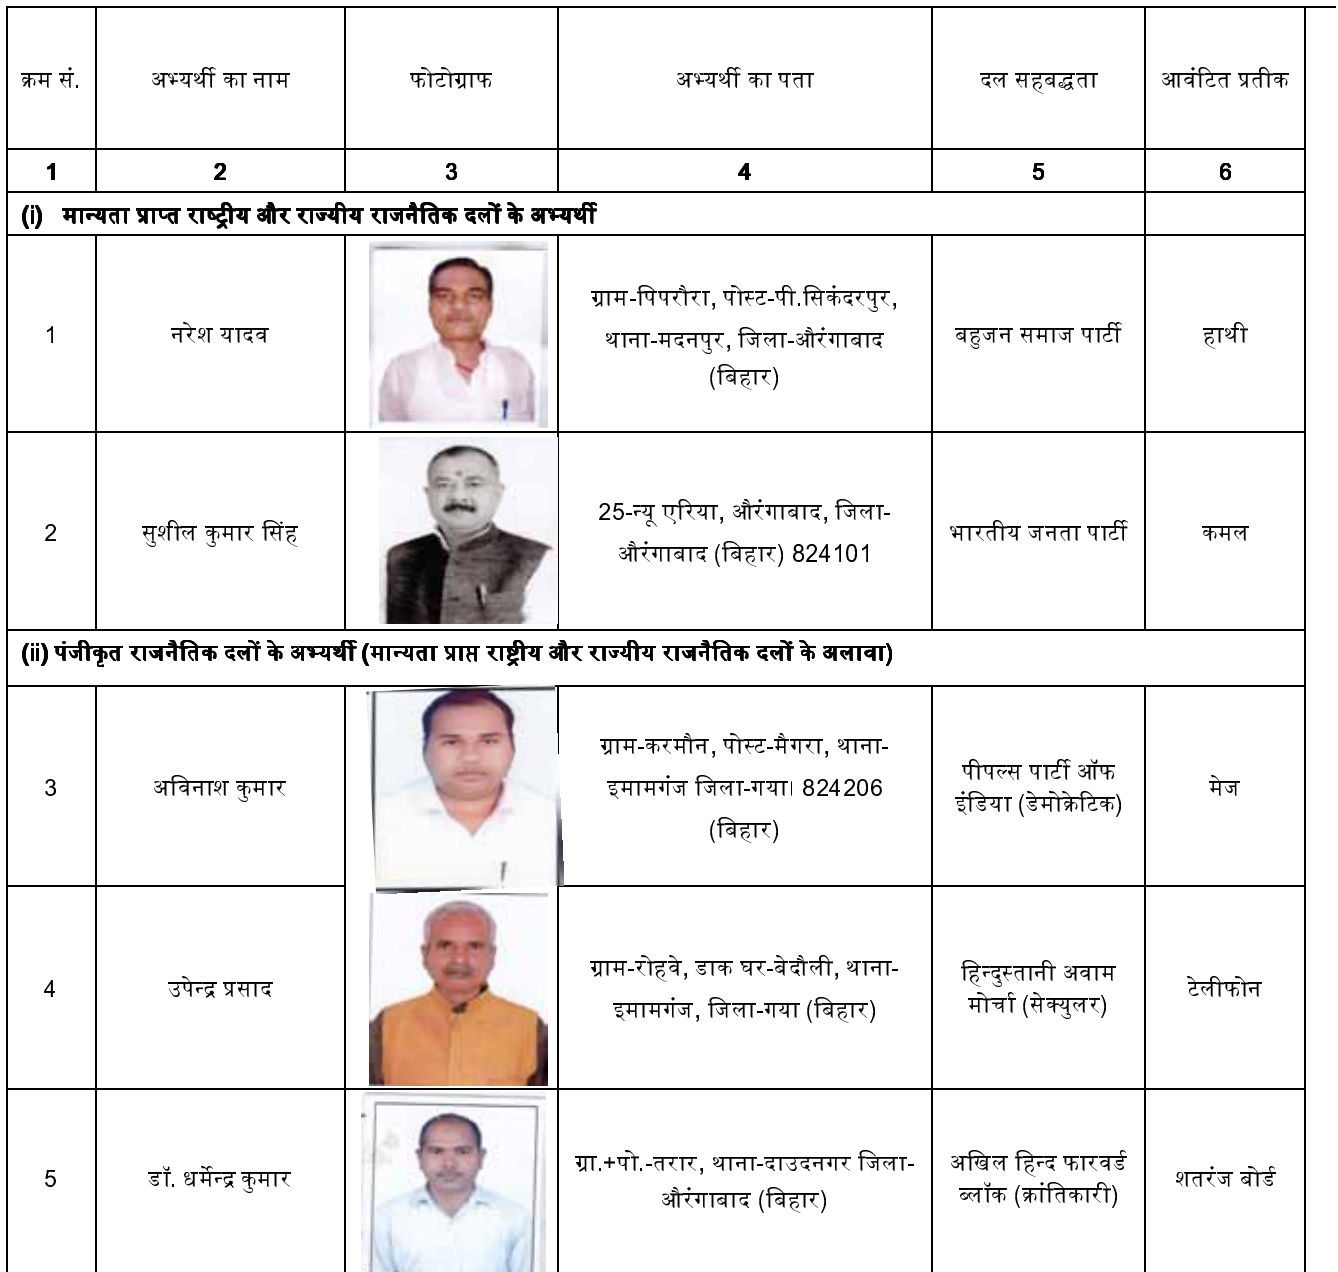 क्रम सं. अभ्यर्थी का नाम फोटोग्राफ अभ्यर्थी का पता दल सहबद्धता आवंटित प्रतीक
1 2 3 4 5 6
(i) मान्यता प्राप्त राष्ट्रीय और राज्यीय राजनैतिक दलों के अभ्यर्थी
1 नरेश यादव ग्राम-पिपरौरा, पोस्ट-पी.सिकंदरपुर,
थाना-मदनपुर, जिला-औरंगाबाद
(बिहार) बहुजन समाज पार्टी हाथी
2 सुशील कुमार सिंह 25-न्यू एरिया, औरंगाबाद, जिला-
औरंगाबाद (बिहार) 824101 भारतीय जनता पार्टी कमल
(ii) पंजीकृत राजनैतिक दलों के अभ्यर्थी (मान्यता प्राप्त राष्ट्रीय और राज्यीय राजनैतिक दलों के अलावा)
3 अविनाश कुमार ग्राम-करमौन, पोस्ट-मैगरा, थाना-
इमामगंज जिला-गया। 824206
(बिहार) पीपल्स पार्टी ऑफ
इंडिया (डेमोक्रेटिक) मेज
4 उपेन्द्र प्रसाद ग्राम-रोहवे, डाक घर-बेदौली, थाना-
इमामगंज, जिला-गया (बिहार) हिन्दुस्तानी अवाम
मोर्चा (सेक्युलर) टेलीफोन
5 डॉ. धर्मेन्द्र कुमार ग्रा.+पो.-तरार, थाना-दाउदनगर जिला-
औरंगाबाद (बिहार) अखिल हिन्द फारवर्ड
ब्लॉक (क्रांतिकारी) शतरंज बोर्ड